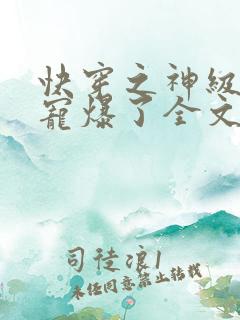 快穿之神级
宠爆了全文
司徒浪1
未经同意禁止转载